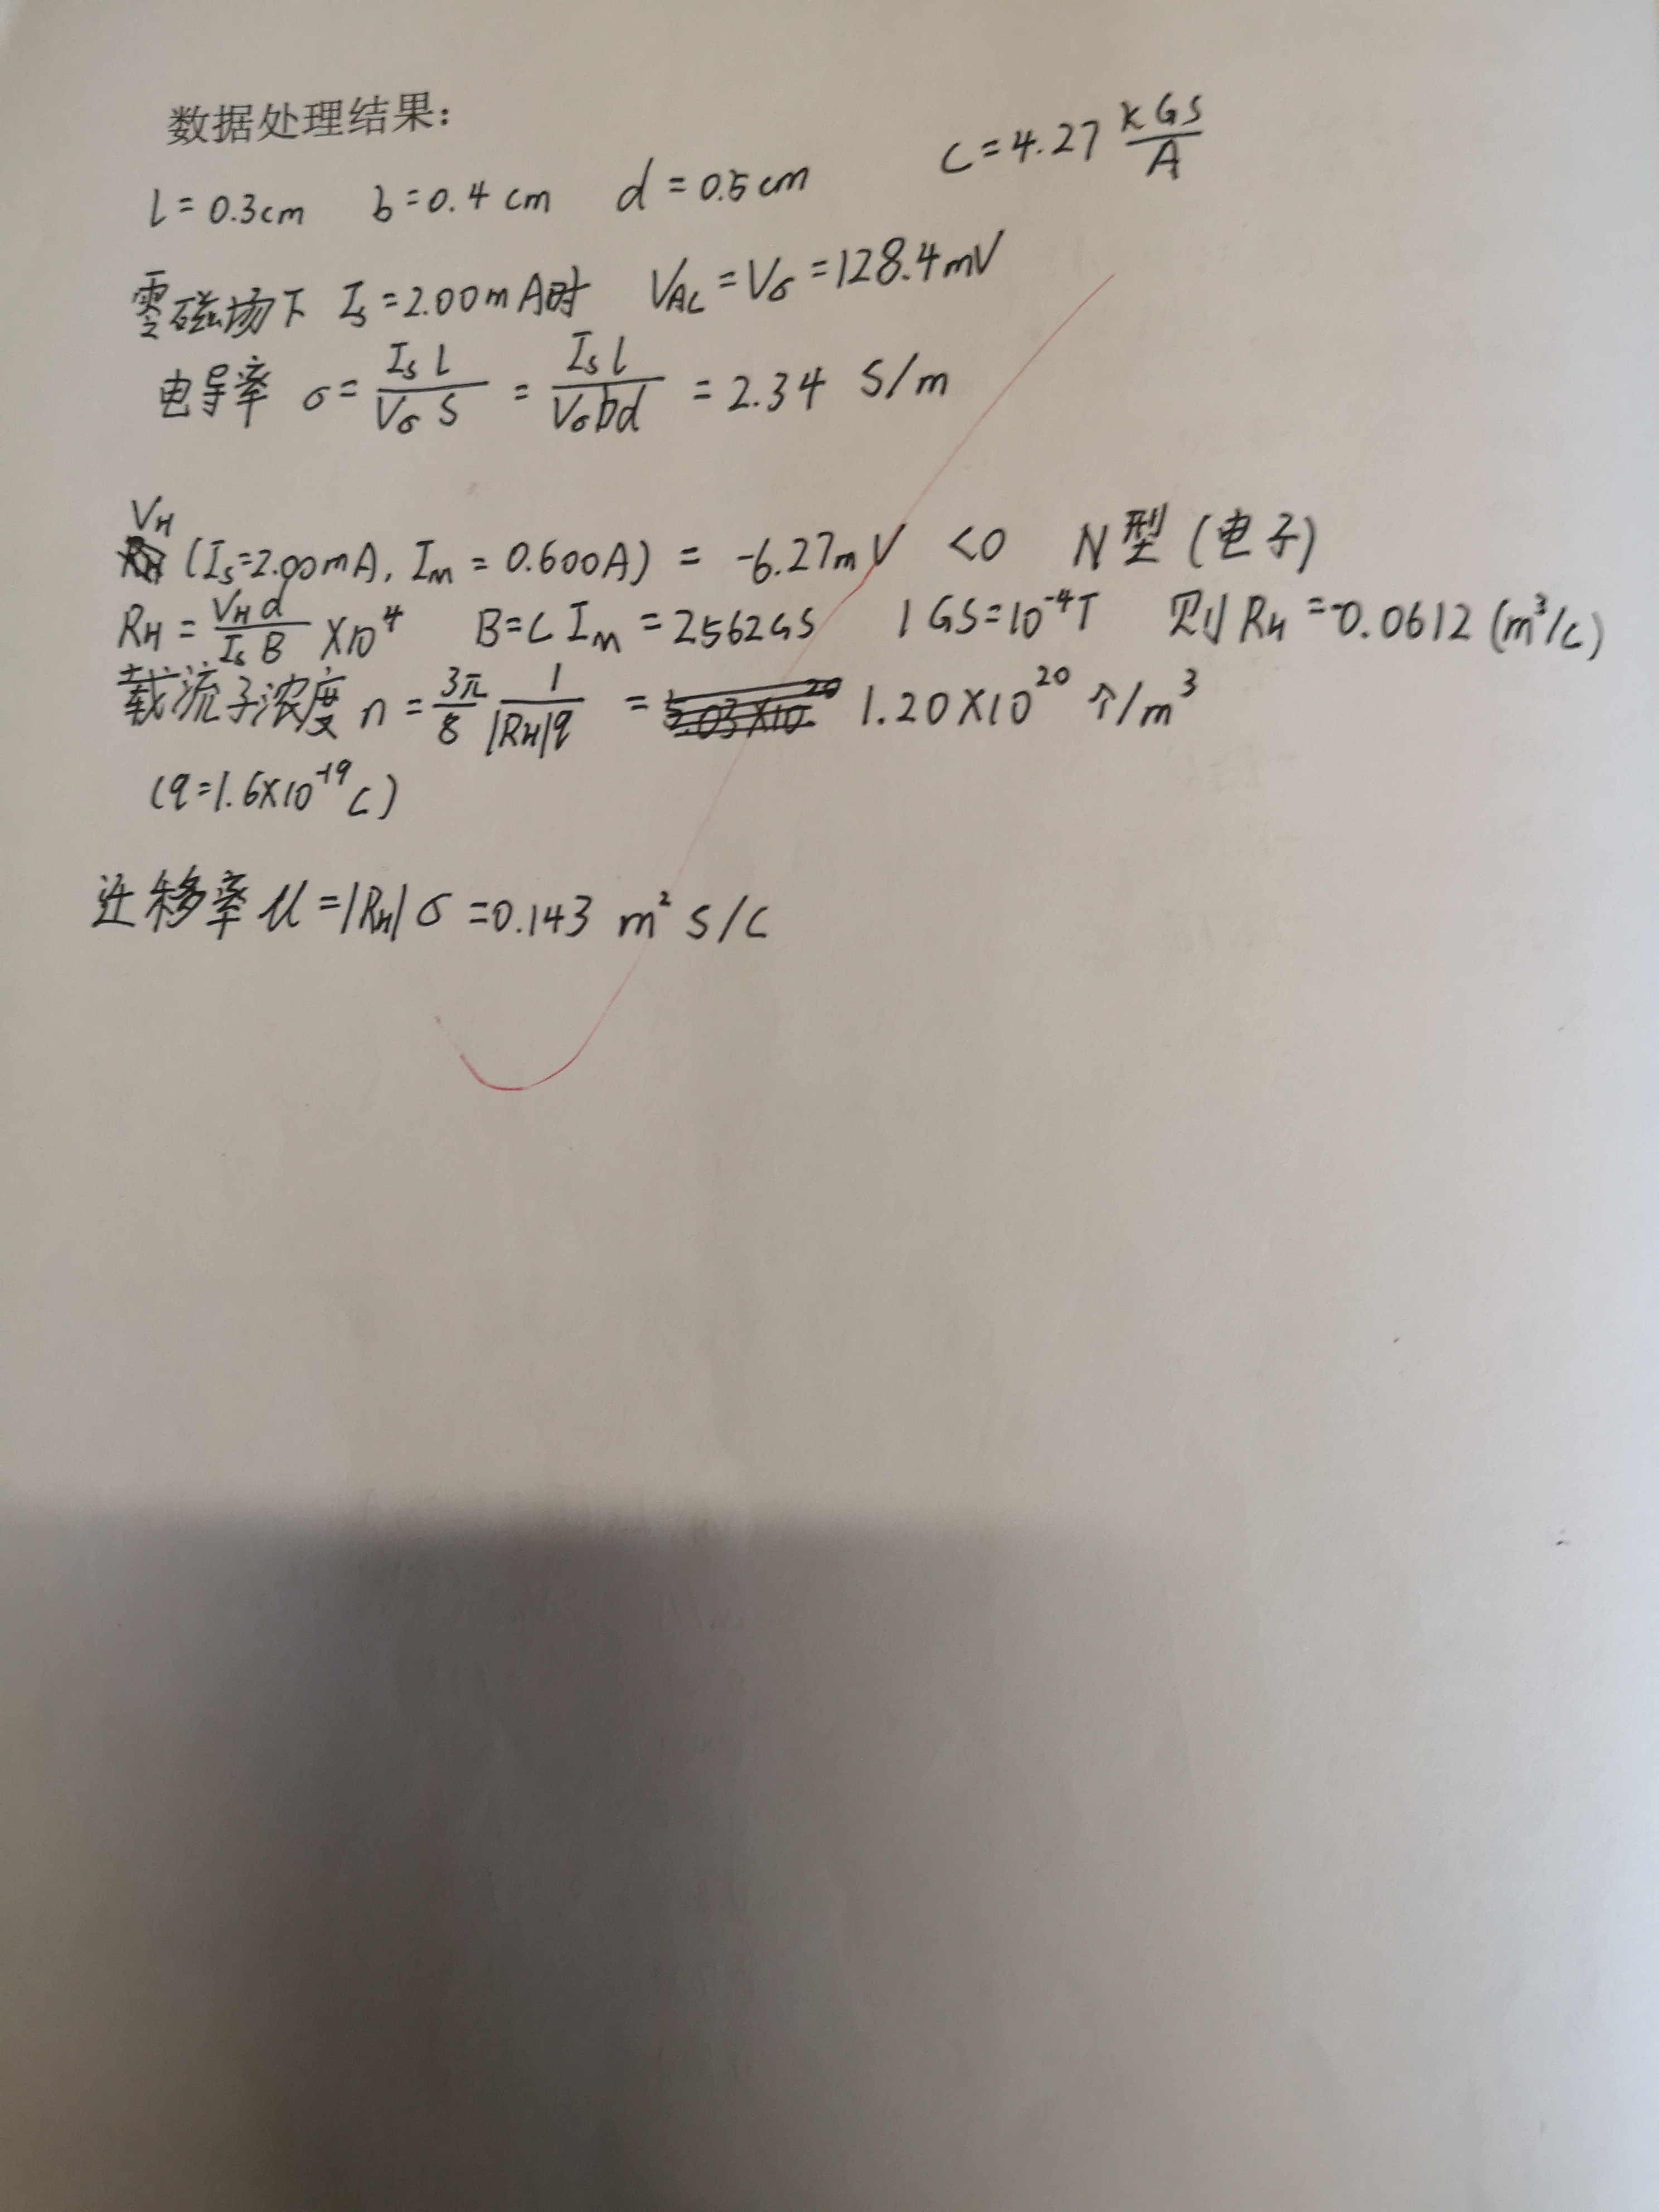 数据处理结果:
l=0.3cm b=0.4cm d=0.5cm C=4.27 kGS/A
零磁场下 Is=2.00mA时 VAC=Vσ=128.4mV
电导率 σ= Is l/(Vσ S) = Is l/(Vσ bd) = 2.34 S/m
VH (Is=2.00mA, Im=0.600A) = -6.27mV <0 N型(电子)
RH = VH d/(Is B) ×10⁴ B=C Im=2562GS 1GS=10⁻⁴T 则RH=-0.0612(m³/C)
载流子浓度 n= 3π/8 1/(|RH|q) = 1.20×10²⁰ 个/m³
(q=1.6×10⁻¹⁹C)
迁移率 μ=|RH|σ=0.143 m² S/C